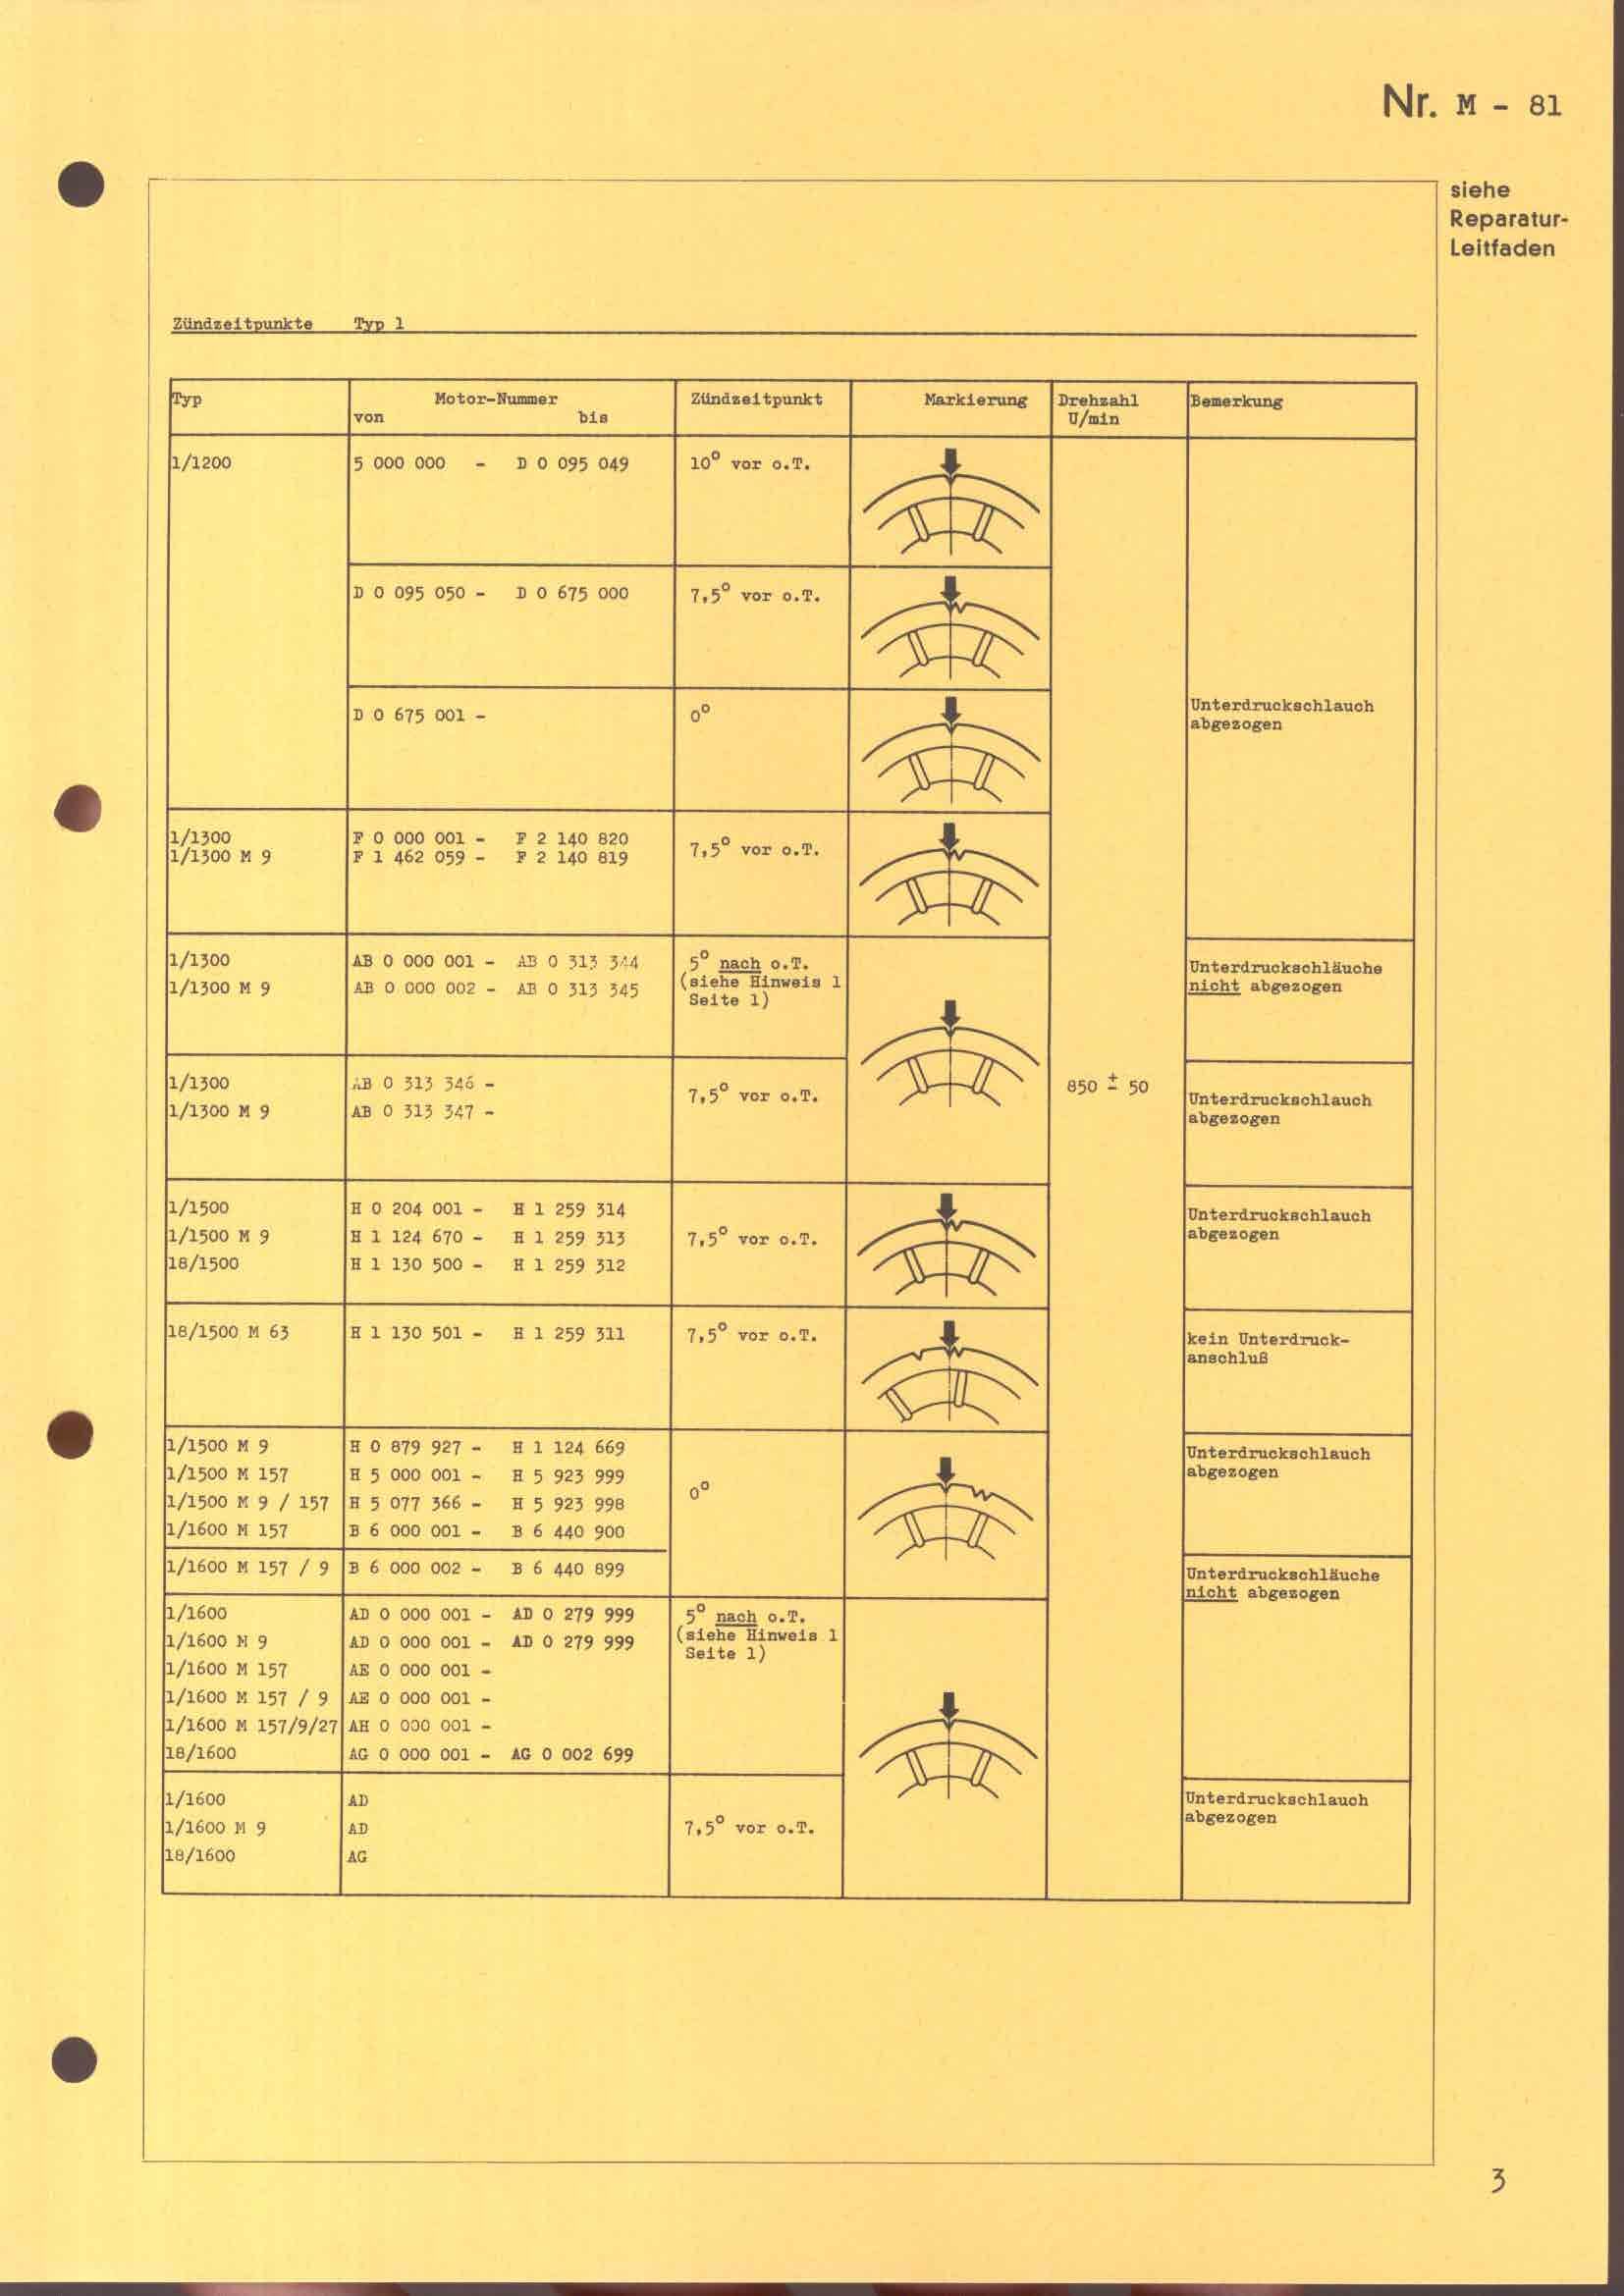 Nr. M - 81
siehe
Reparatur-
Leitfaden
Zündzeitpunkte Typ 1
Typ Motor-Nummer Zündzeitpunkt Markierung Drehzahl Bemerkung
von bis U/min
1/1200 5 000 000 - D 0 095 049 10° vor o.T.
D 0 095 050 - D 0 675 000 7,5° vor o.T.
D 0 675 001 - 0°
Unterdruckschlauch
abgezogen
1/1300 F 0 000 001 - F 2 140 820
1/1300 M 9 F 1 462 059 - F 2 140 819
7,5° vor o.T.
1/1300 AB 0 000 001 - AB 0 313 344 5° nach o.T.
1/1300 M 9 AB 0 000 002 - AB 0 313 345 (siehe Hinweis 1
Seite 1)
Unterdruckschläuche
nicht abgezogen
1/1300 AB 0 313 346 -
1/1300 M 9 AB 0 313 347 -
7,5° vor o.T.
850 ± 50
Unterdruckschlauch
abgezogen
1/1500 H 0 204 001 - H 1 259 314
1/1500 M 9 H 1 124 670 - H 1 259 313 7,5° vor o.T.
18/1500 H 1 130 500 - H 1 259 312
Unterdruckschlauch
abgezogen
18/1500 M 63 H 1 130 501 - H 1 259 311 7,5° vor o.T.
kein Unterdruck-
anschluß
1/1500 M 9 H 0 879 927 - H 1 124 669
1/1500 M 157 H 5 000 001 - H 5 923 999
1/1500 M 9 / 157 H 5 077 366 - H 5 923 998
1/1600 M 157 B 6 000 001 - B 6 440 900
0°
Unterdruckschlauch
abgezogen
1/1600 M 157 / 9 B 6 000 002 - B 6 440 899
Unterdruckschläuche
nicht abgezogen
1/1600 AD 0 000 001 - AD 0 279 999 5° nach o.T.
1/1600 M 9 AD 0 000 001 - AD 0 279 999 (siehe Hinweis 1
Seite 1)
1/1600 M 157 AE 0 000 001 -
1/1600 M 157 / 9 AE 0 000 001 -
1/1600 M 157/9/27 AH 0 000 001 -
18/1600 AG 0 000 001 - AG 0 002 699
1/1600 AD
1/1600 M 9 AD 7,5° vor o.T.
18/1600 AG
Unterdruckschlauch
abgezogen
3